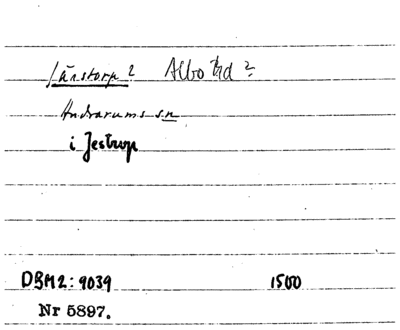 Järstorp? Albo hd?
Andrarums sn
i Jestrop
DBM2: 9039 1500
Nr 5897.